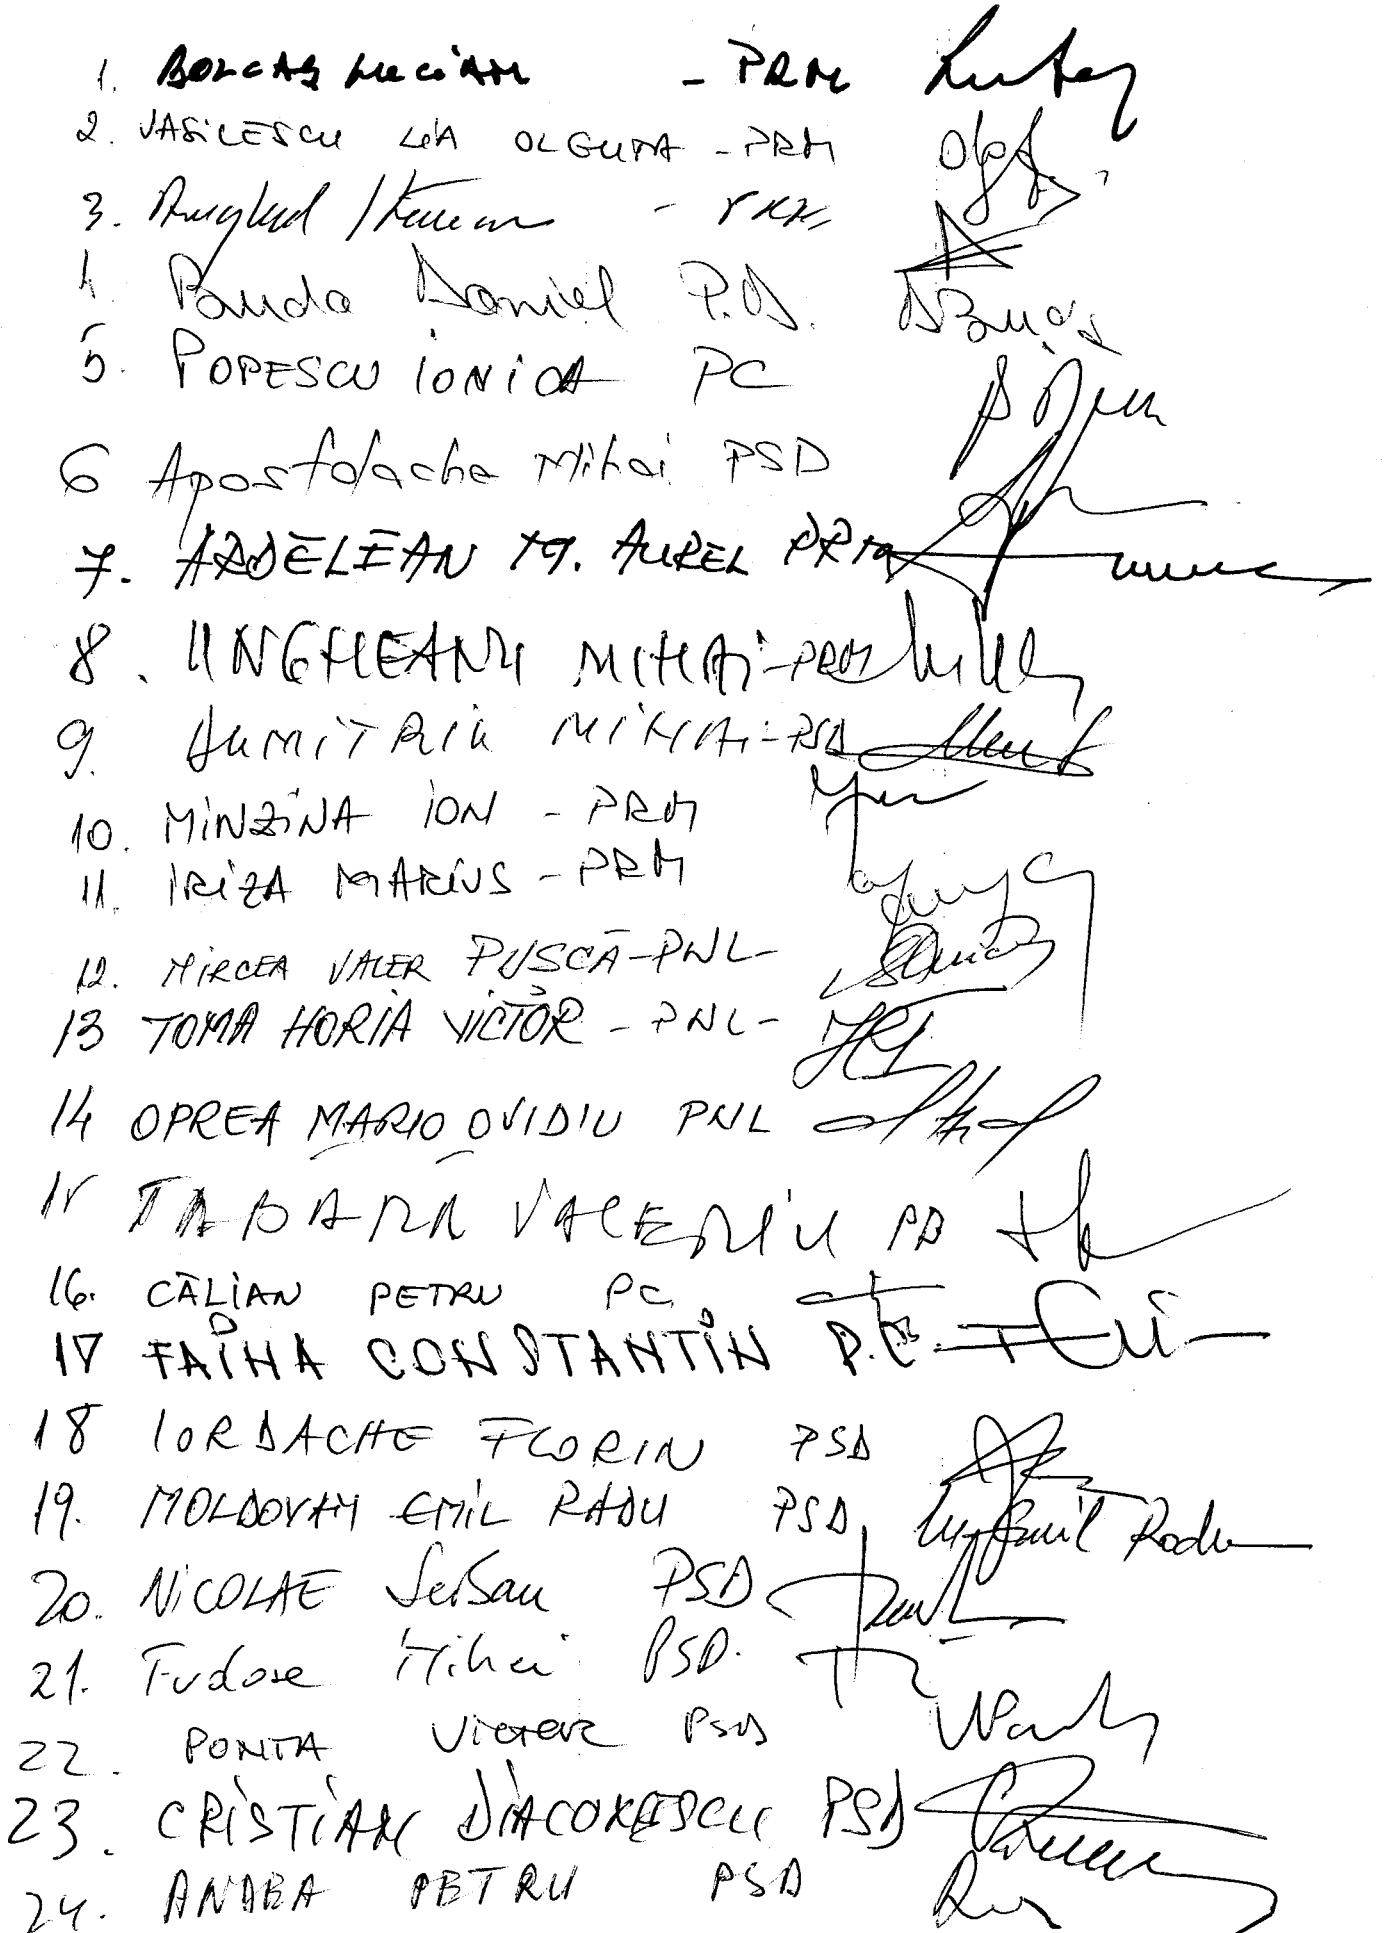 1. BOLCAŞ LUCIAN - PRM
2. VASILESCU LIA OLGUTA - PRM
3.
4. Buda Daniel P.D.
5. POPESCU IONICA PC
6 Apostolache Mihai PSD
7. ARDELEAN M. AUREL PRM
8. UNGHEANU MIHAI - PRM
9. DUMITRIU MIHAI - PSD
10. MINZINA ION - PRM
11. IRIZA MARIUS - PRM
12. MIRCEA VALER PUSCĂ - PNL -
13 TOMA HORIA VICTOR - PNL -
14 OPREA MARIO OVIDIU PNL
15 TABARA VALERIU PD
16. CĂLIAN PETRU PC
17 FAINA CONSTANTIN P.C.
18 IORDACHE FLORIN PSD
19. MOLDOVAN EMIL RADU PSD Emil Radu
20. NICOLAE Serban PSD
21. Tudose Mihai PSD.
22. PONTA VICTOR PSD
23. CRISTIAN DIACONESCU PSD
24. ANDEA PETRU PSD